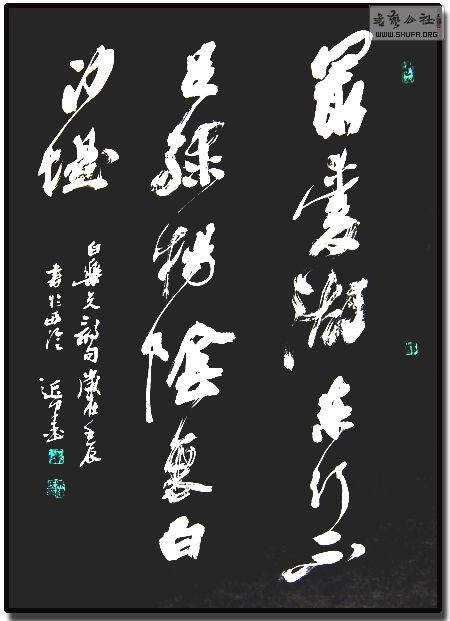 最愛湖東行不
足綠楊陰裏白
沙堤
白樂天詩句歲在壬辰
書於西泠
书艺公社
WWW.SHUFA.ORG